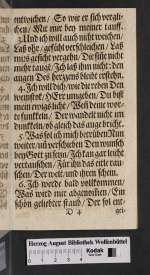 entweichen/ So wie er sich vergli-
chen/ Mit mir bey meiner tauff.
3. Und ich will auch nicht weichen/
Laß ohr/ gefühl verschleichen/ Laß
mir gesicht vergehn/ Die süsse nicht
mehr tauge/ Ich laß ihn nicht: den
augen Des hertzens bleibt er stehn.
4. Ich will dich/ wie die reben Den
weinstock/ HErr umgeben/ Du bist
mein ewigs liecht/ Weil deine wor-
te funckeln/ Der wandelt nicht im
dunckeln/ ob gleich das auge bricht.
5. Was sol ich mich betrüben Nun
weiter/ und verschieben Den wunsch
bey
zu seyn/ Ich kan gar leicht
vertauschen/ Für ihn das eitle rau-
schen/ Der welt/ und ihren schein.
6. Ich werde bald vollkommen/
Was wird mir abgenommen/ Ein
schön gelehrter staub/ Der sol ent-
D 4
gei-
Herzog August Bibliothek Wolfenbüttel